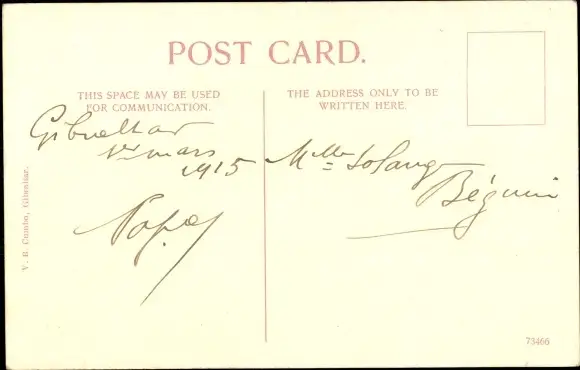 POST CARD.
THIS SPACE MAY BE USED
FOR COMMUNICATION.
THE ADDRESS ONLY TO BE
WRITTEN HERE.
Gibraltar
1er mars
1915
Papa
Mlle Solange
Béguin
V. B. Cumbo, Gibraltar.
73466